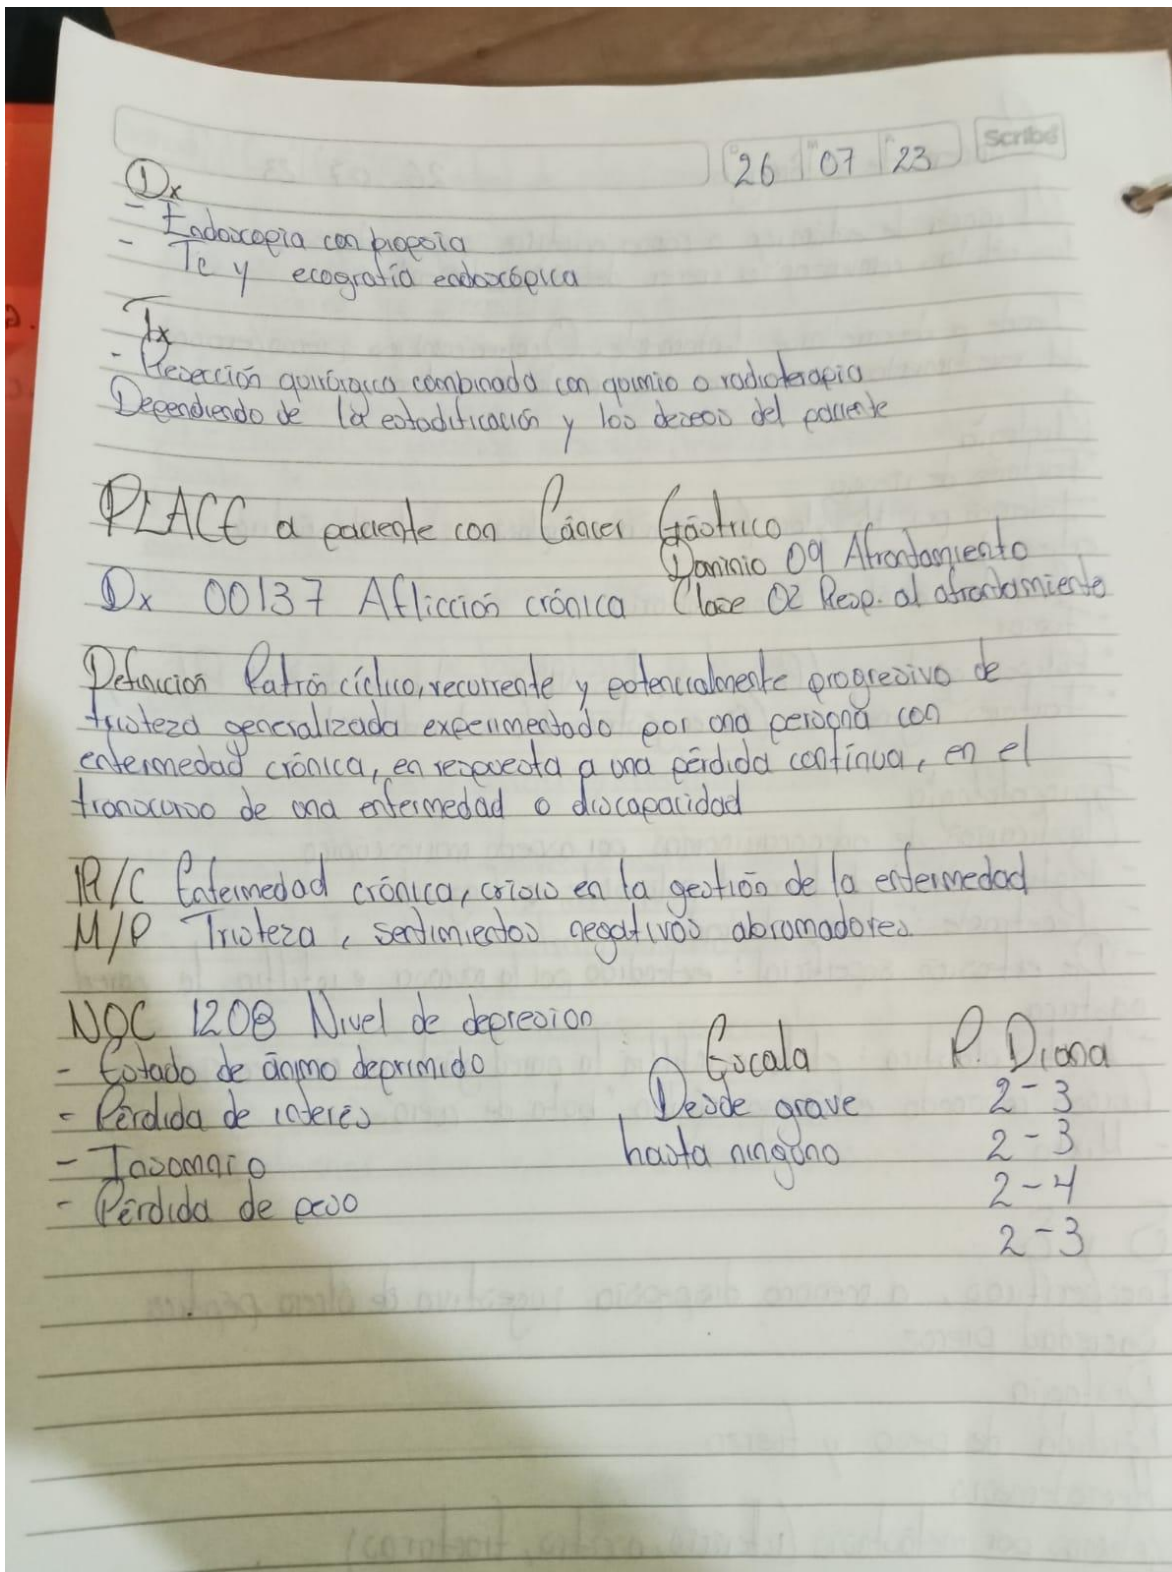 26 07 23
Scribe
Dx
- Endoscopia con biopsia
- Tc y ecografía endoscópica
Tx
- Resección quirúrgica combinada con quimio o radioterapia
Dependiendo de la estadificación y los deseos del paciente
PLACE a paciente con Cáncer Gástrico
Dominio 09 Afrontamiento
Dx 00137 Aflicción crónica Clase 02 Resp. al afrontamiento
Definicion Patrón cíclico, recurrente y potencialmente progresivo de
tristeza generalizada experimentado por una persona con
enfermedad crónica, en respuesta a una pérdida contínua, en el
transcurso de una enfermedad o discapacidad
R/C Enfermedad crónica, crisis en la gestión de la enfermedad
M/P Tristeza, sentimientos negativos abrumadores.
NOC 1208 Nivel de depresion
- Estado de ánimo deprimido
- Pérdida de interés
- Insomnio
- Pérdida de peso
Escala
Desde grave
hasta ninguno
P. Diana
2-3
2-3
2-4
2-3